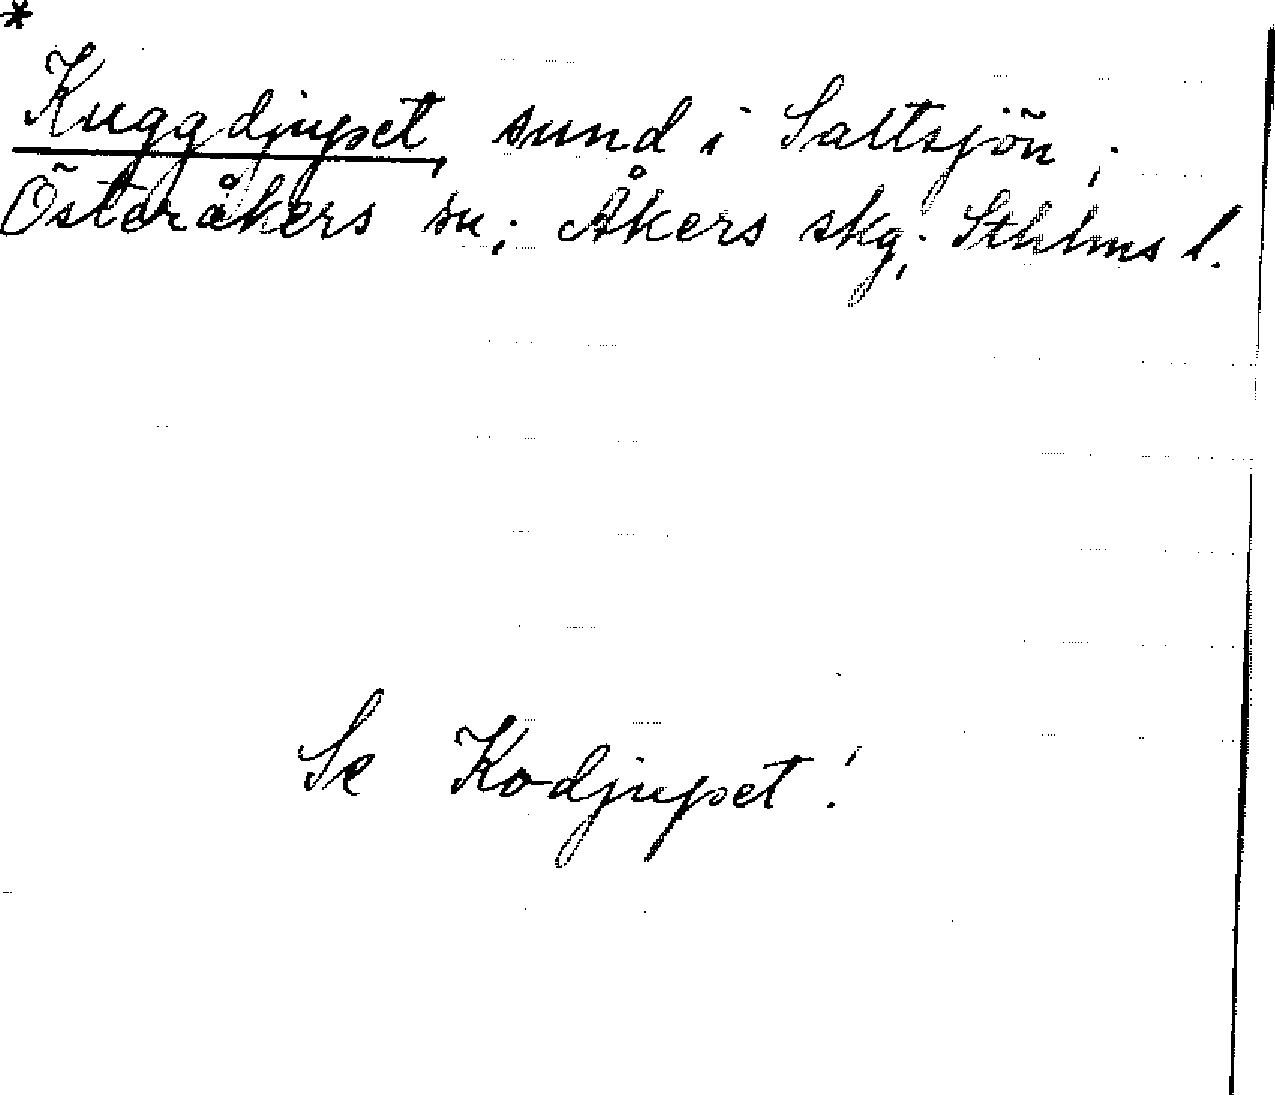 *
Kuggdjupet, sund i Saltsjön;
Österåkers sn; Åkers skg; Sthlms l.
Se Kodjupet!